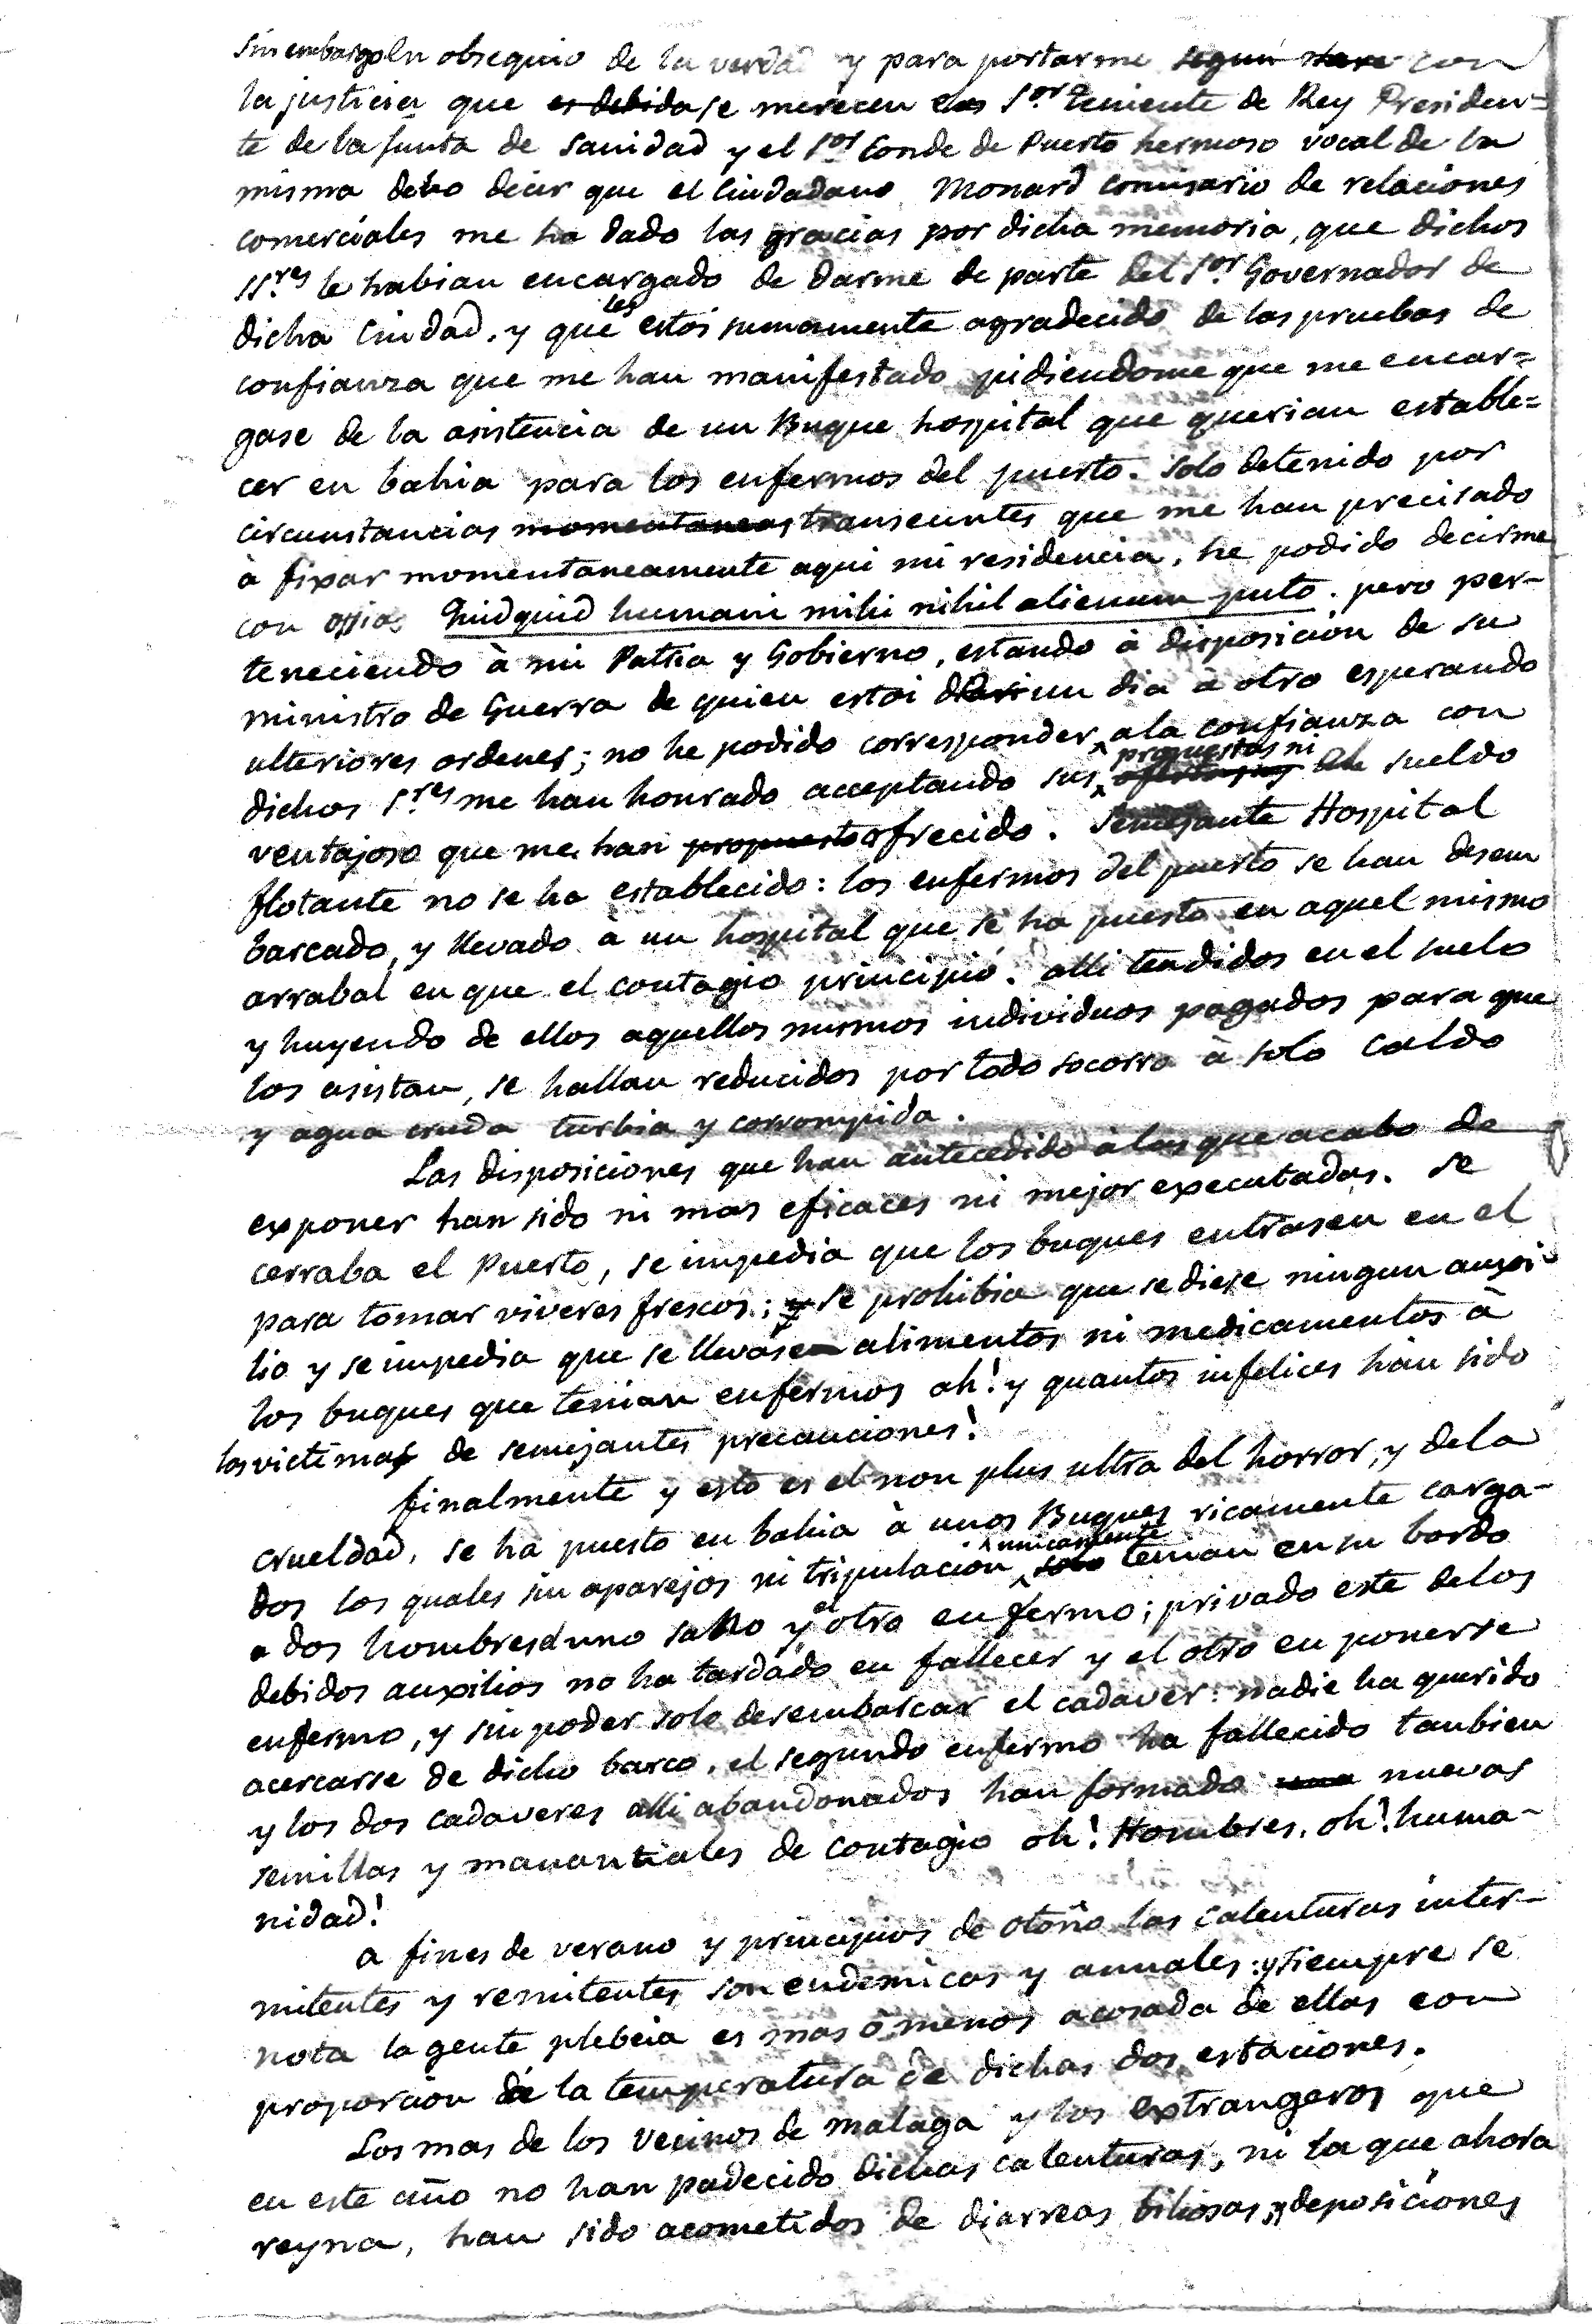 Sin embargo En obsequio de la verdad y para portarme segun con
la justicia que es debida se merecen los S.or teniente de Rey Presiden=
te de la Junta de Sanidad y el S.or Conde de Puerto hermoso vocal de la
misma debo decir que el Ciudadano Monard comisario de relaciones
comerciales me ha dado las gracias por dicha memoria, que dichos
SS.res le habian encargado de darme de parte del S.or Governador de
dicha Ciudad. y que les estoi sumamente agradecido de las pruebas de
confianza que me han manifestado pidiendome que me encar=
gase de la asistencia de un Buque hospital que querian estable=
cer en bahia para los enfermos del puerto. Solo detenido por
circunstancias momentaneas transeuntes que me han precisado
à fixar momentaneamente aqui mi residencia, he podido decirme
con Quidquid humani mihi nihil alienum puto. pero per-
teneciendo à mi Patria y Gobierno, estando à disposicion de su
ministro de Guerra de quien estoi de un dia à otro esperando
ulteriores ordenes; no he podido corresponder a la confianza con
dichos S.res me han honrado acceptando sus propuestas ni sueldo
ventajoso que me han propuesto ofrecido. Semejante Hospital
flotante no se ha establecido: los enfermos del puerto se han desem
barcado, y llevado à un hospital que se ha puesto en aquel mismo
arrabal en que el contagio principió. alli tendidos en el suelo
y huyendo de ellos aquellos mismos individuos pagados para que
los asistan, se hallan reducidos por todo socorro à solo caldo
y agua cruda turbia y corrompida.
Las disposiciones que han antecedido à las que acabo de
exponer han sido ni mas eficaces ni mejor executadas. se
cerraba el Puerto, se impedia que los buques entrasen en el
para tomar viveres frescos; y se prohibia que se diese ningun auxi
lio y se impedia que se llevasen alimentos ni medicamentos à
los buques que tenian enfermos ah! y quantos infelices han sido
las victimas de semejantes precauciones!
finalmente y esto es el non plus ultra del horror, y de la
crueldad, se ha puesto en bahia à unos Buques ricamente carga-
dos los quales sin aparejos ni tripulacion unicamente solo tenian en su bordo
a dos hombres el uno sano y el otro enfermo; privado este de los
debidos auxilios no ha tardado en fallecer y el otro en ponerse
enfermo, y sin poder solo desembarcar el cadaver: nadie ha querido
acercarse de dicho barco, el segundo enfermo ha fallecido tanbien
y los dos cadaveres alli abandonados han formado una nuevas
semillas y manantiales de contagio oh! Hombres, oh! huma-
nidad!
a fines de verano y principios de otoño las calenturas inter-
mitentes y remitentes son endemicas y annales: y siempre se
nota la gente plebeia es mas ò menos acosada de ellas con
proporcion de la temperatura de dichas dos estaciones.
Los mas de los vecinos de malaga y los extrangeros que
en este año no han padecido dichas calenturas, ni la que ahora
reyna, han sido acometidos de diarreas biliosas, y deposiciones